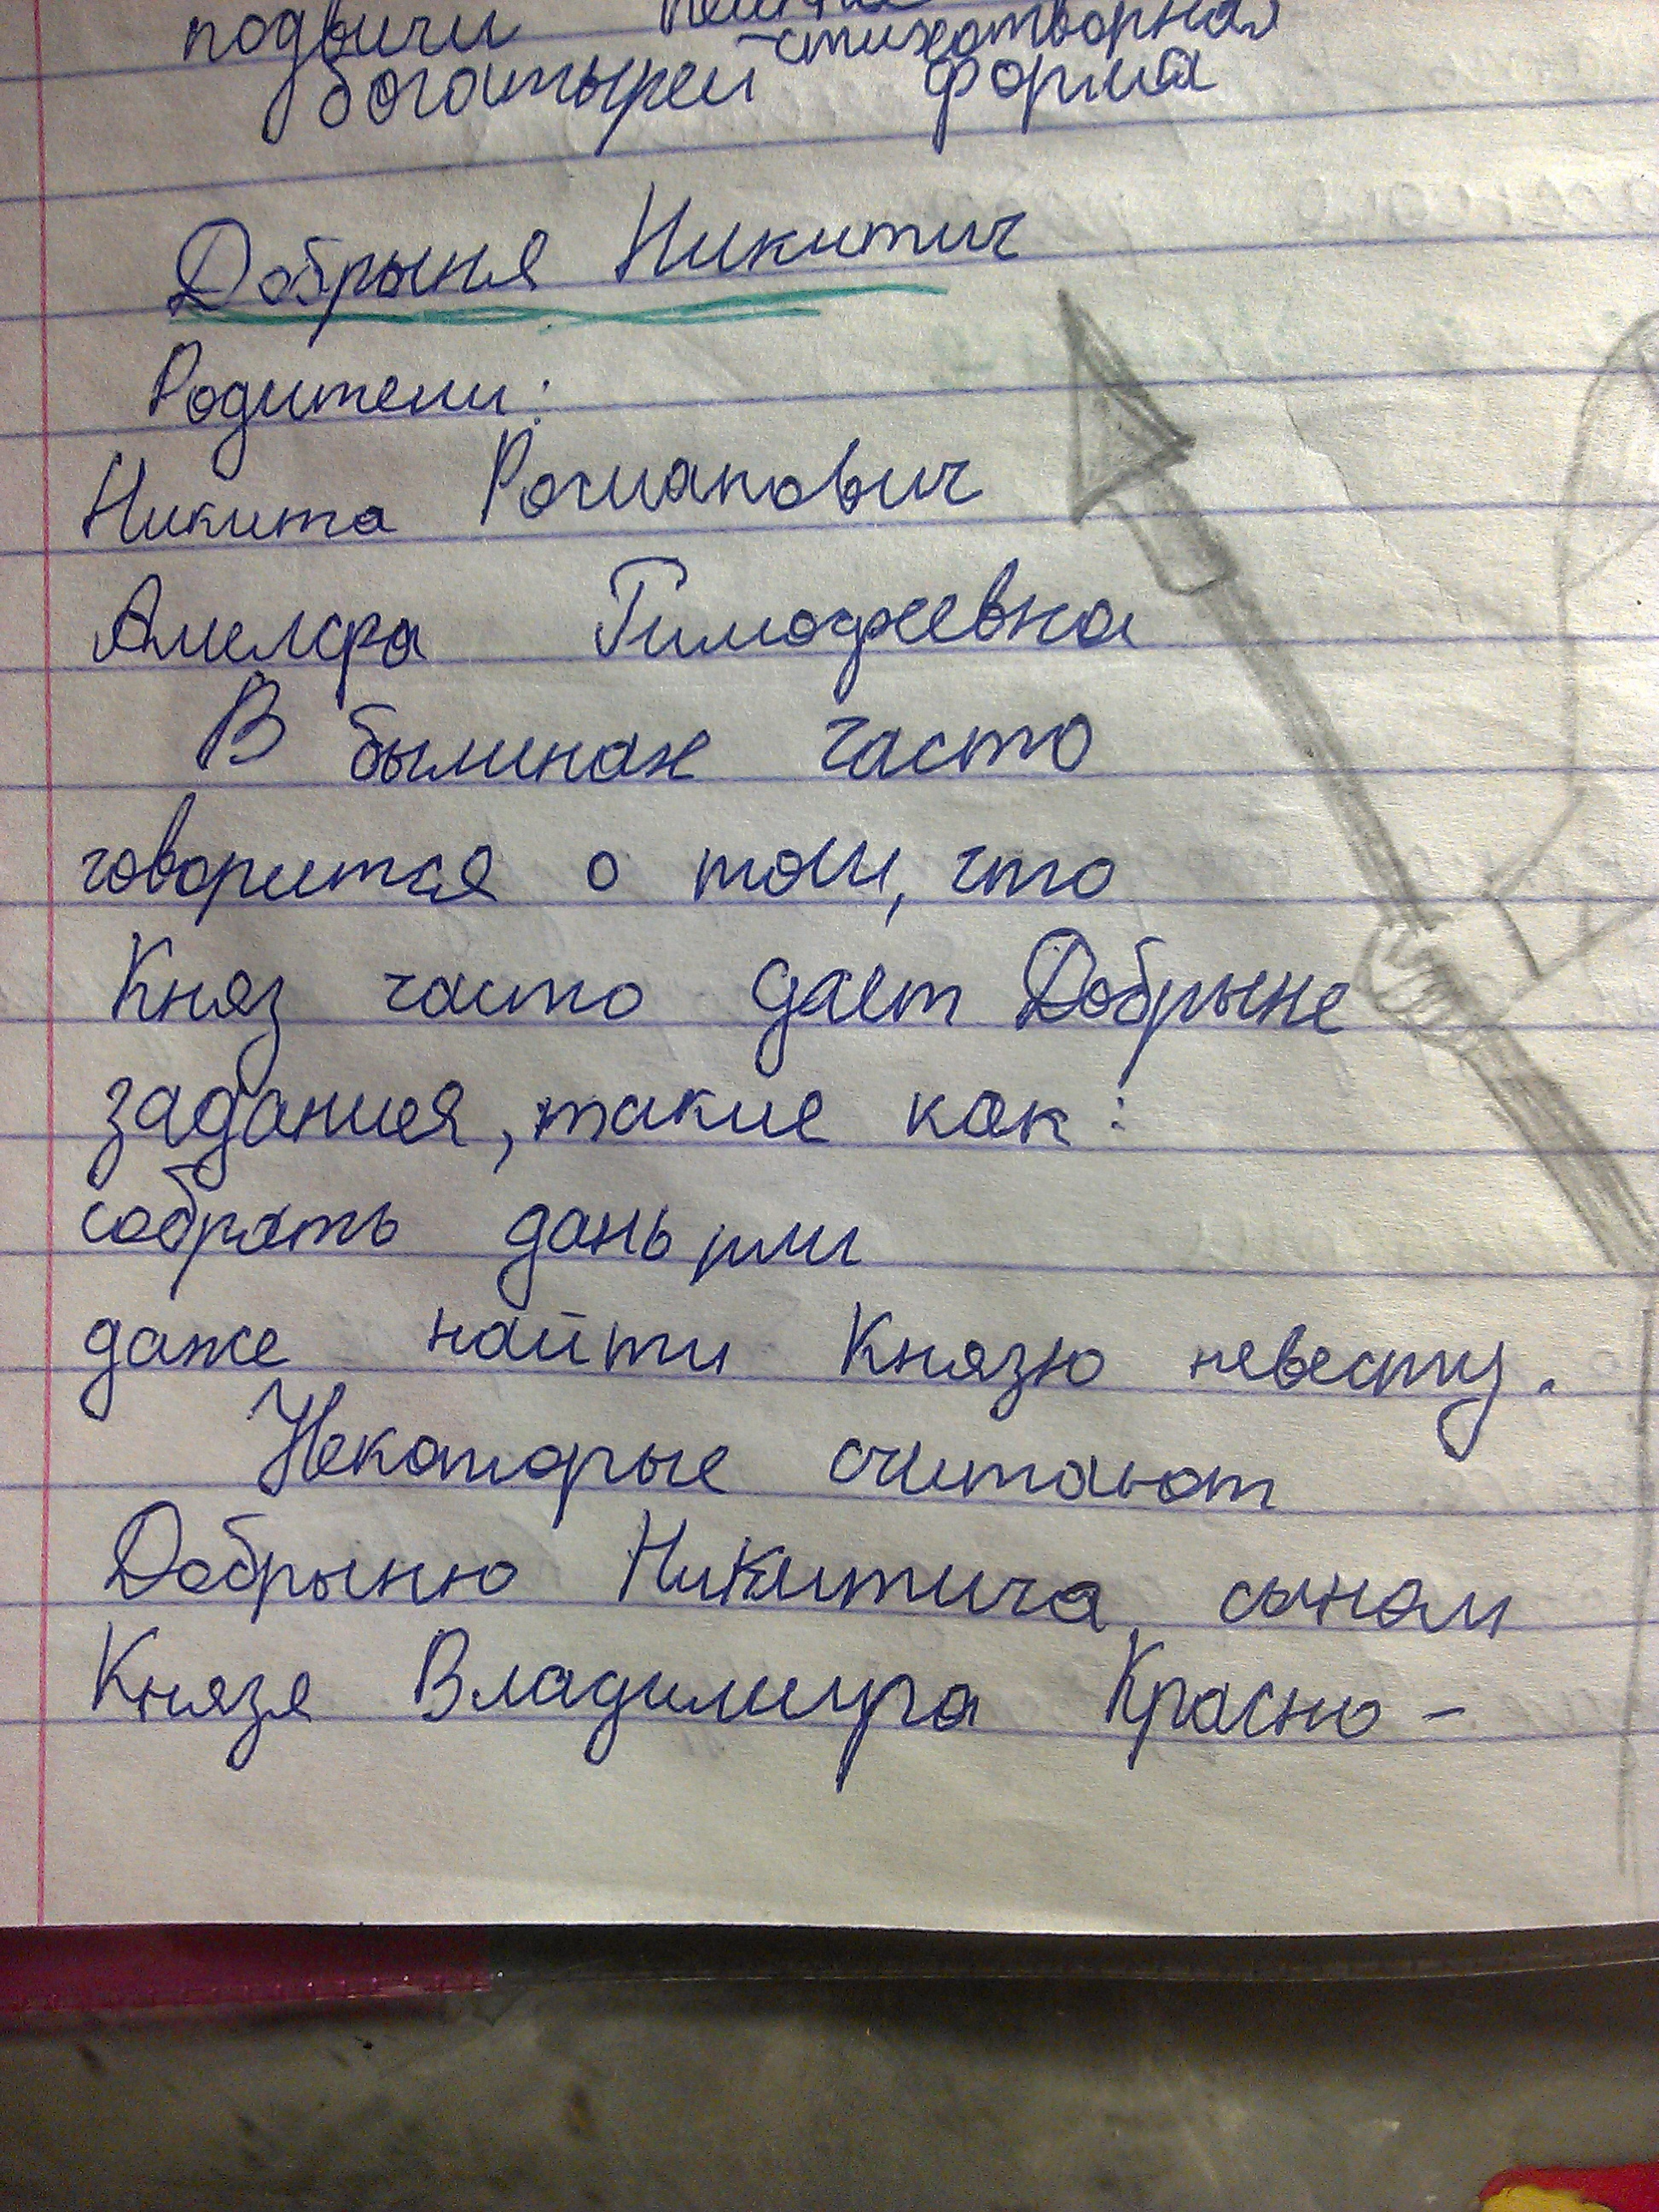 подвичи -стихотворная
богатырей форма
Добрыня Никитич
Родители:
Никита Романович
Амелфа Тимофеевна
В былинах часто
говорится о том, что
Княз часто дает Добрыне
задания, такие как:
собрать дань, или
даже найти Князю невесту.
Некоторые считают
Добрыню Никитича, сыном
Князя Владимира Красно-